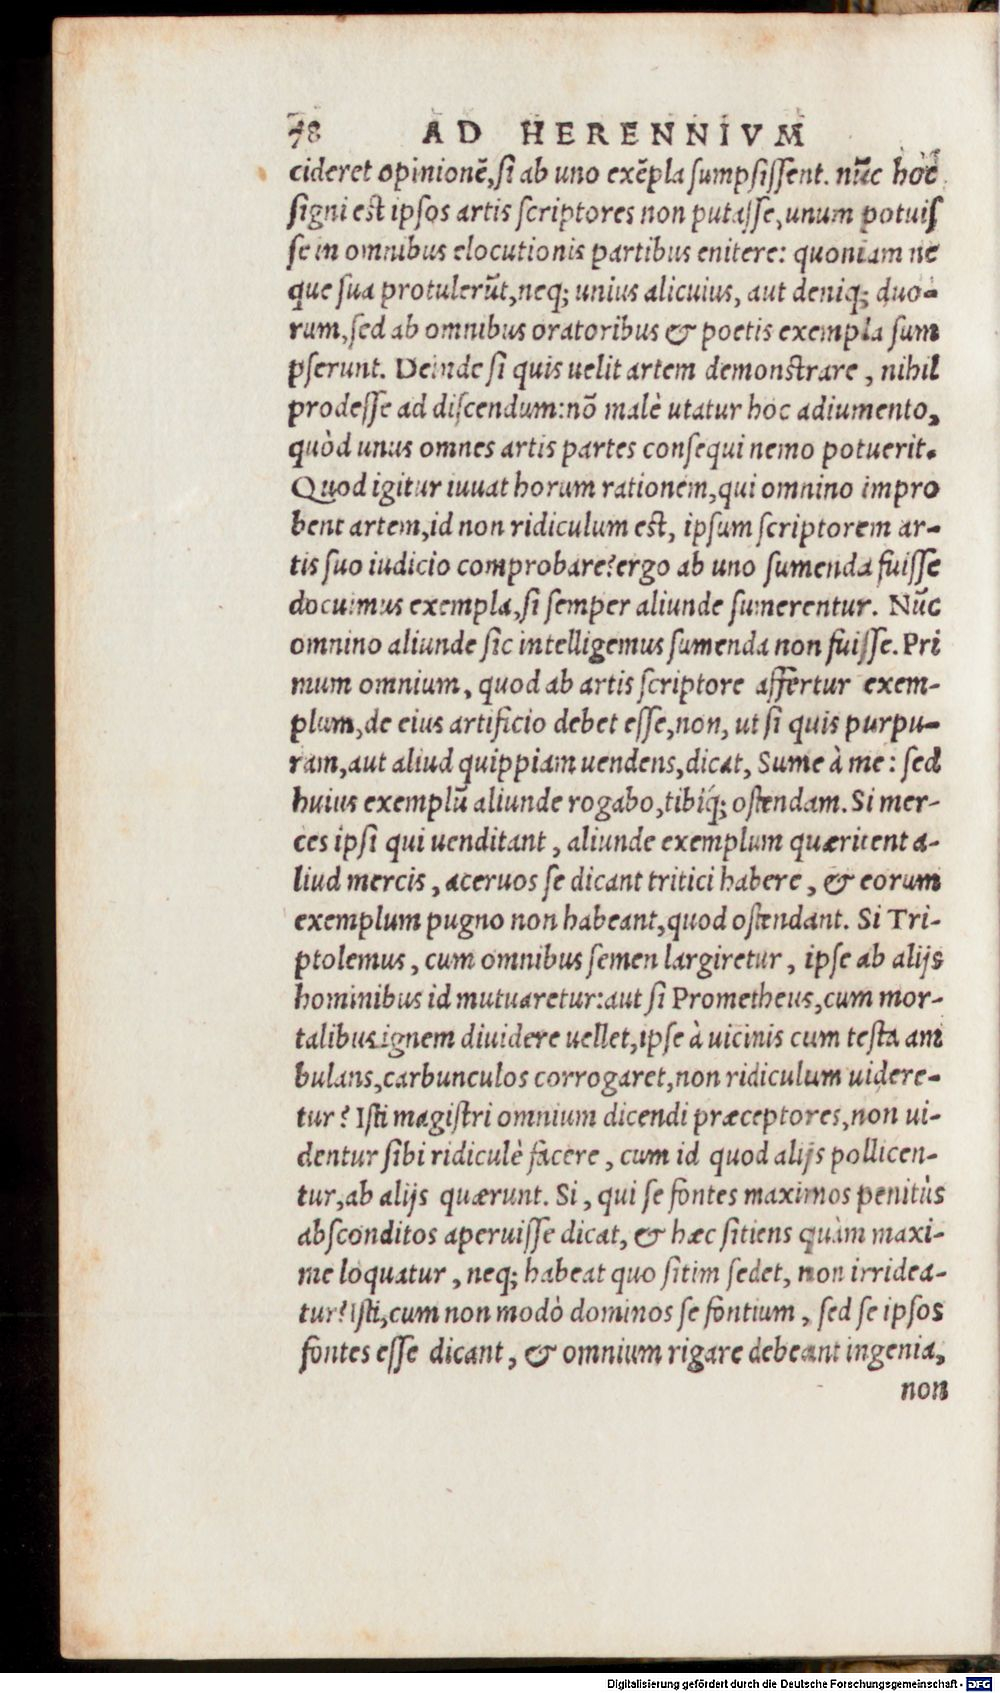 78 AD HERENNIVM
cideret opinionē, ſi ab uno exēpla ſumpſiſſent. nūc hoc
ſigni eſt ipſos artis ſcriptores non putaſſe, unum potuiſ
ſe in omnibus elocutionis partibus enitere: quoniam ne
que ſua protulerūt, neq; unius alicuius, aut deniq; duo-
rum, ſed ab omnibus oratoribus & poetis exempla ſum
pſerunt. Deinde ſi quis uelit artem demonſtrare, nihil
prodeſſe ad diſcendum: nō malè utatur hoc adiumento,
quòd unus omnes artis partes conſequi nemo potuerit.
Quod igitur iuuat horum rationem, qui omnino impro
bent artem, id non ridiculum eſt, ipſum ſcriptorem ar-
tis ſuo iudicio comprobare? ergo ab uno ſumenda fuiſſe
docuimus exempla, ſi ſemper aliunde ſumerentur. Nūc
omnino aliunde ſic intelligemus ſumenda non fuiſſe. Pri
mum omnium, quod ab artis ſcriptore affertur exem-
plum, de eius artificio debet eſſe, non, ut ſi quis purpu-
ram, aut aliud quippiam uendens, dicat, Sume à me: ſed
huius exemplū aliunde rogabo, tibiq́; oſtendam. Si mer-
ces ipſi qui uenditant, aliunde exemplum quæritent a-
liud mercis, aceruos ſe dicant tritici habere, & eorum
exemplum pugno non habeant, quod oſtendant. Si Tri-
ptolemus, cum omnibus ſemen largiretur, ipſe ab alijs
hominibus id mutuaretur: aut ſi Prometheus, cum mor-
talibus ignem diuidere uellet, ipſe à uicinis cum teſta am
bulans, carbunculos corrogaret, non ridiculum uidere-
tur? Iſti magiſtri omnium dicendi præceptores, non ui-
dentur ſibi ridiculè facere, cum id quod alijs pollicen-
tur, ab alijs quærunt. Si, qui ſe fontes maximos penitùs
abſconditos aperuiſſe dicat, & hæc ſitiens quàm maxi-
me loquatur, neq; habeat quo ſitim ſedet, non irridea-
tur? Iſti, cum non modò dominos ſe fontium, ſed ſe ipſos
fontes eſſe dicant, & omnium rigare debeant ingenia,
non
Digitalisierung gefördert durch die Deutsche Forschungsgemeinschaft - DFG